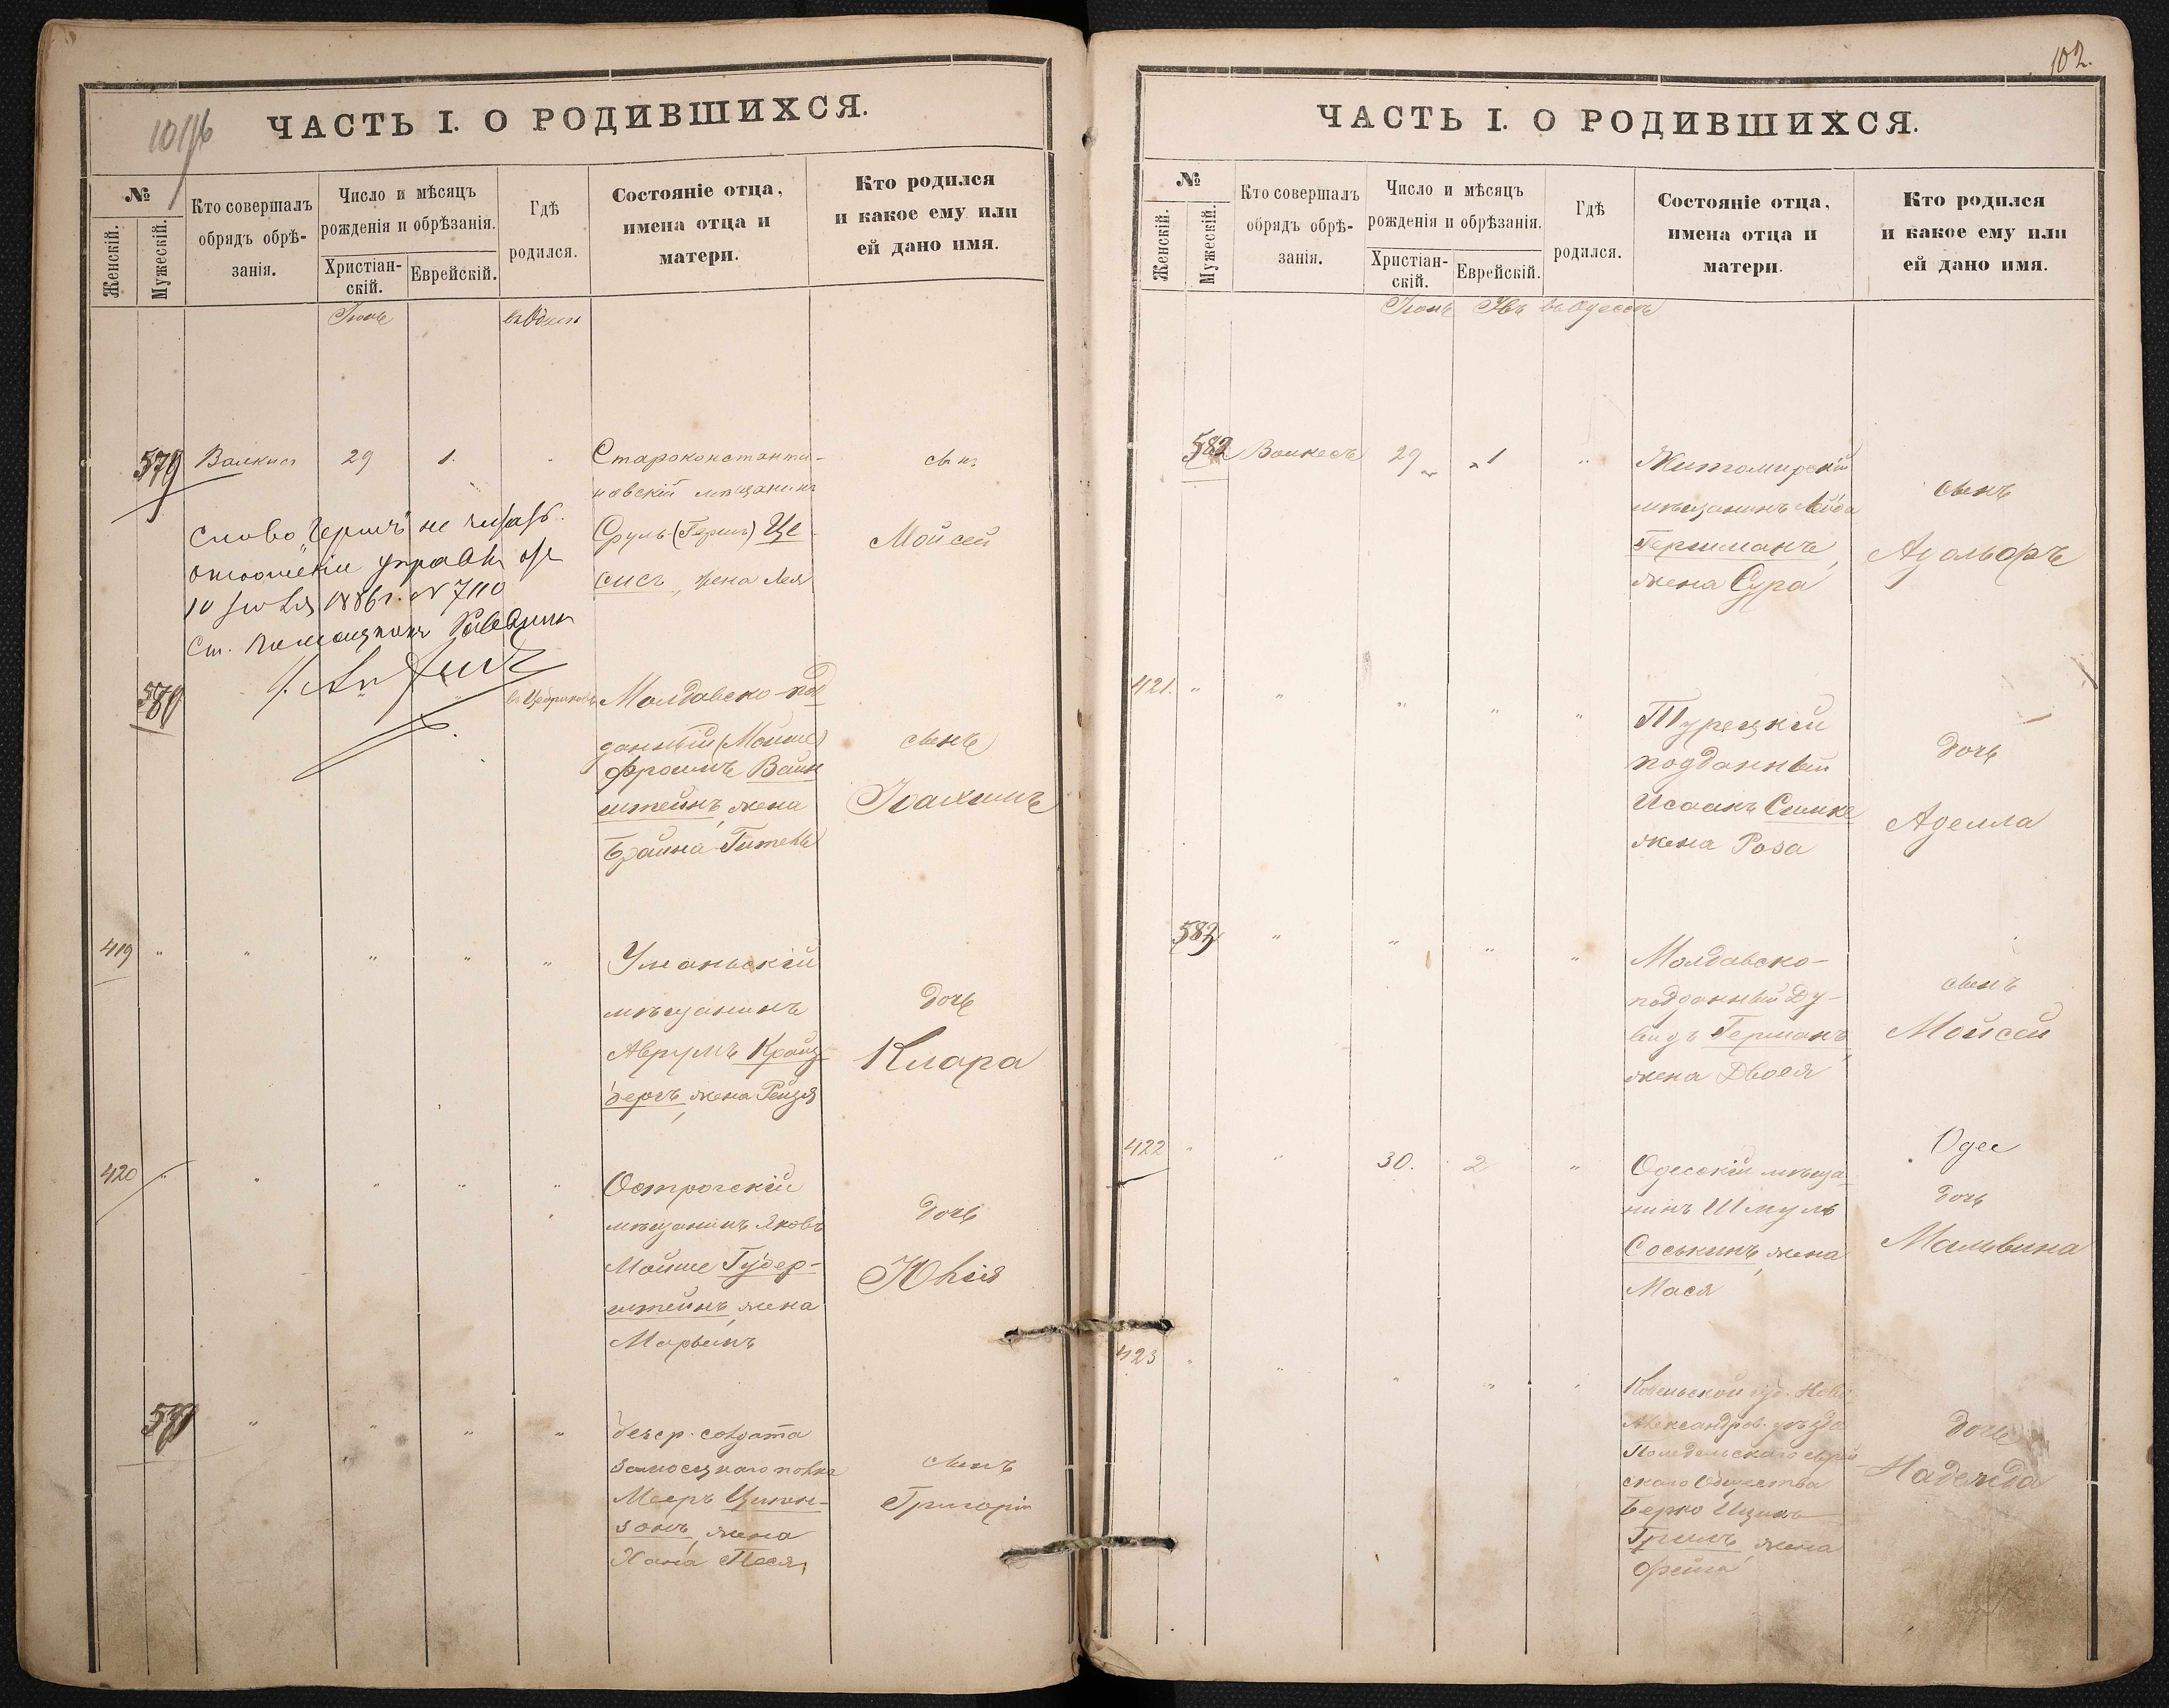 10116
ЧАСТЬ I. О РОДИВШИХСЯ.
№
Женскій.
Мужескій.
Кто совершалъ
обрядъ обрѣ-
занія.
Число и мѣсяцъ
рожденія и обрѣзанія.
Христіан-
скій.
Еврейскій.
Гдѣ
родился.
Состояніе отца,
имена отца и
матери.
Кто родился
и какое ему или
ей дано имя.
Іюнь
579
29
1.
Староконстанти-
новскій мѣщанинъ
Сруль (Гершъ) Це-
сисъ, жена Лея
сынъ
Мойсей
Слово „Гершъ" не читать.
10 1886 г. № 7110
Ст. Помощникъ Раввина
580
Молдавско-под
данный (Мойше)
Фроимъ Вайн
штейнъ, жена
Брайна-Гитель
сынъ
Іоахимъ
419 " " " " "
Уманьскій
мѣщанинъ
Аврумъ Крайц-
бергъ, жена Рейзя
дочь
Клара
420 " " " " "
Острогскій
мѣщанинъ Яковъ
Мойше Гудер-
штейнъ, жена
Марьямъ
дочь
Юлія
" " " "
безср. солдата
Замосцкаго полка
Мееръ Ципен-
зонъ, жена
Хана Песя,
сынъ
Григорій
102.
ЧАСТЬ I. О РОДИВШИХСЯ.
№
Женскій.
Мужескій.
Кто совершалъ
обрядъ обрѣ-
занія.
Число и мѣсяцъ
рожденія и обрѣзанія.
Христіан-
скій.
Еврейскій.
Гдѣ
родился.
Состояніе отца,
имена отца и
матери.
Кто родился
и какое ему или
ей дано имя.
Іюнь въ Одессѣ
582
29
1
"
Житомирскій
мѣщанинъ Лейба
Гершманъ,
жена Сура
сынъ
Адольфъ
421. " " " " "
Турецкій
подданный
Исаакъ Симке
жена Роза
дочь
Аделла
583 " " " "
Молдавско-
подданный Ду-
видъ Германъ,
жена Двося
сынъ
Мойсей
422 " " 30. 2 "
Одесскій мѣща-
нинъ Шмуль
Соськинъ, жена
Мася
Одес
дочь
Мальвина
423 " " " " "
Ковенской губ. Ново-
Александров. уѣзда
скаго Общества
Берко Ицикъ
Гримъ, жена
Фрейга
дочь
Надежда